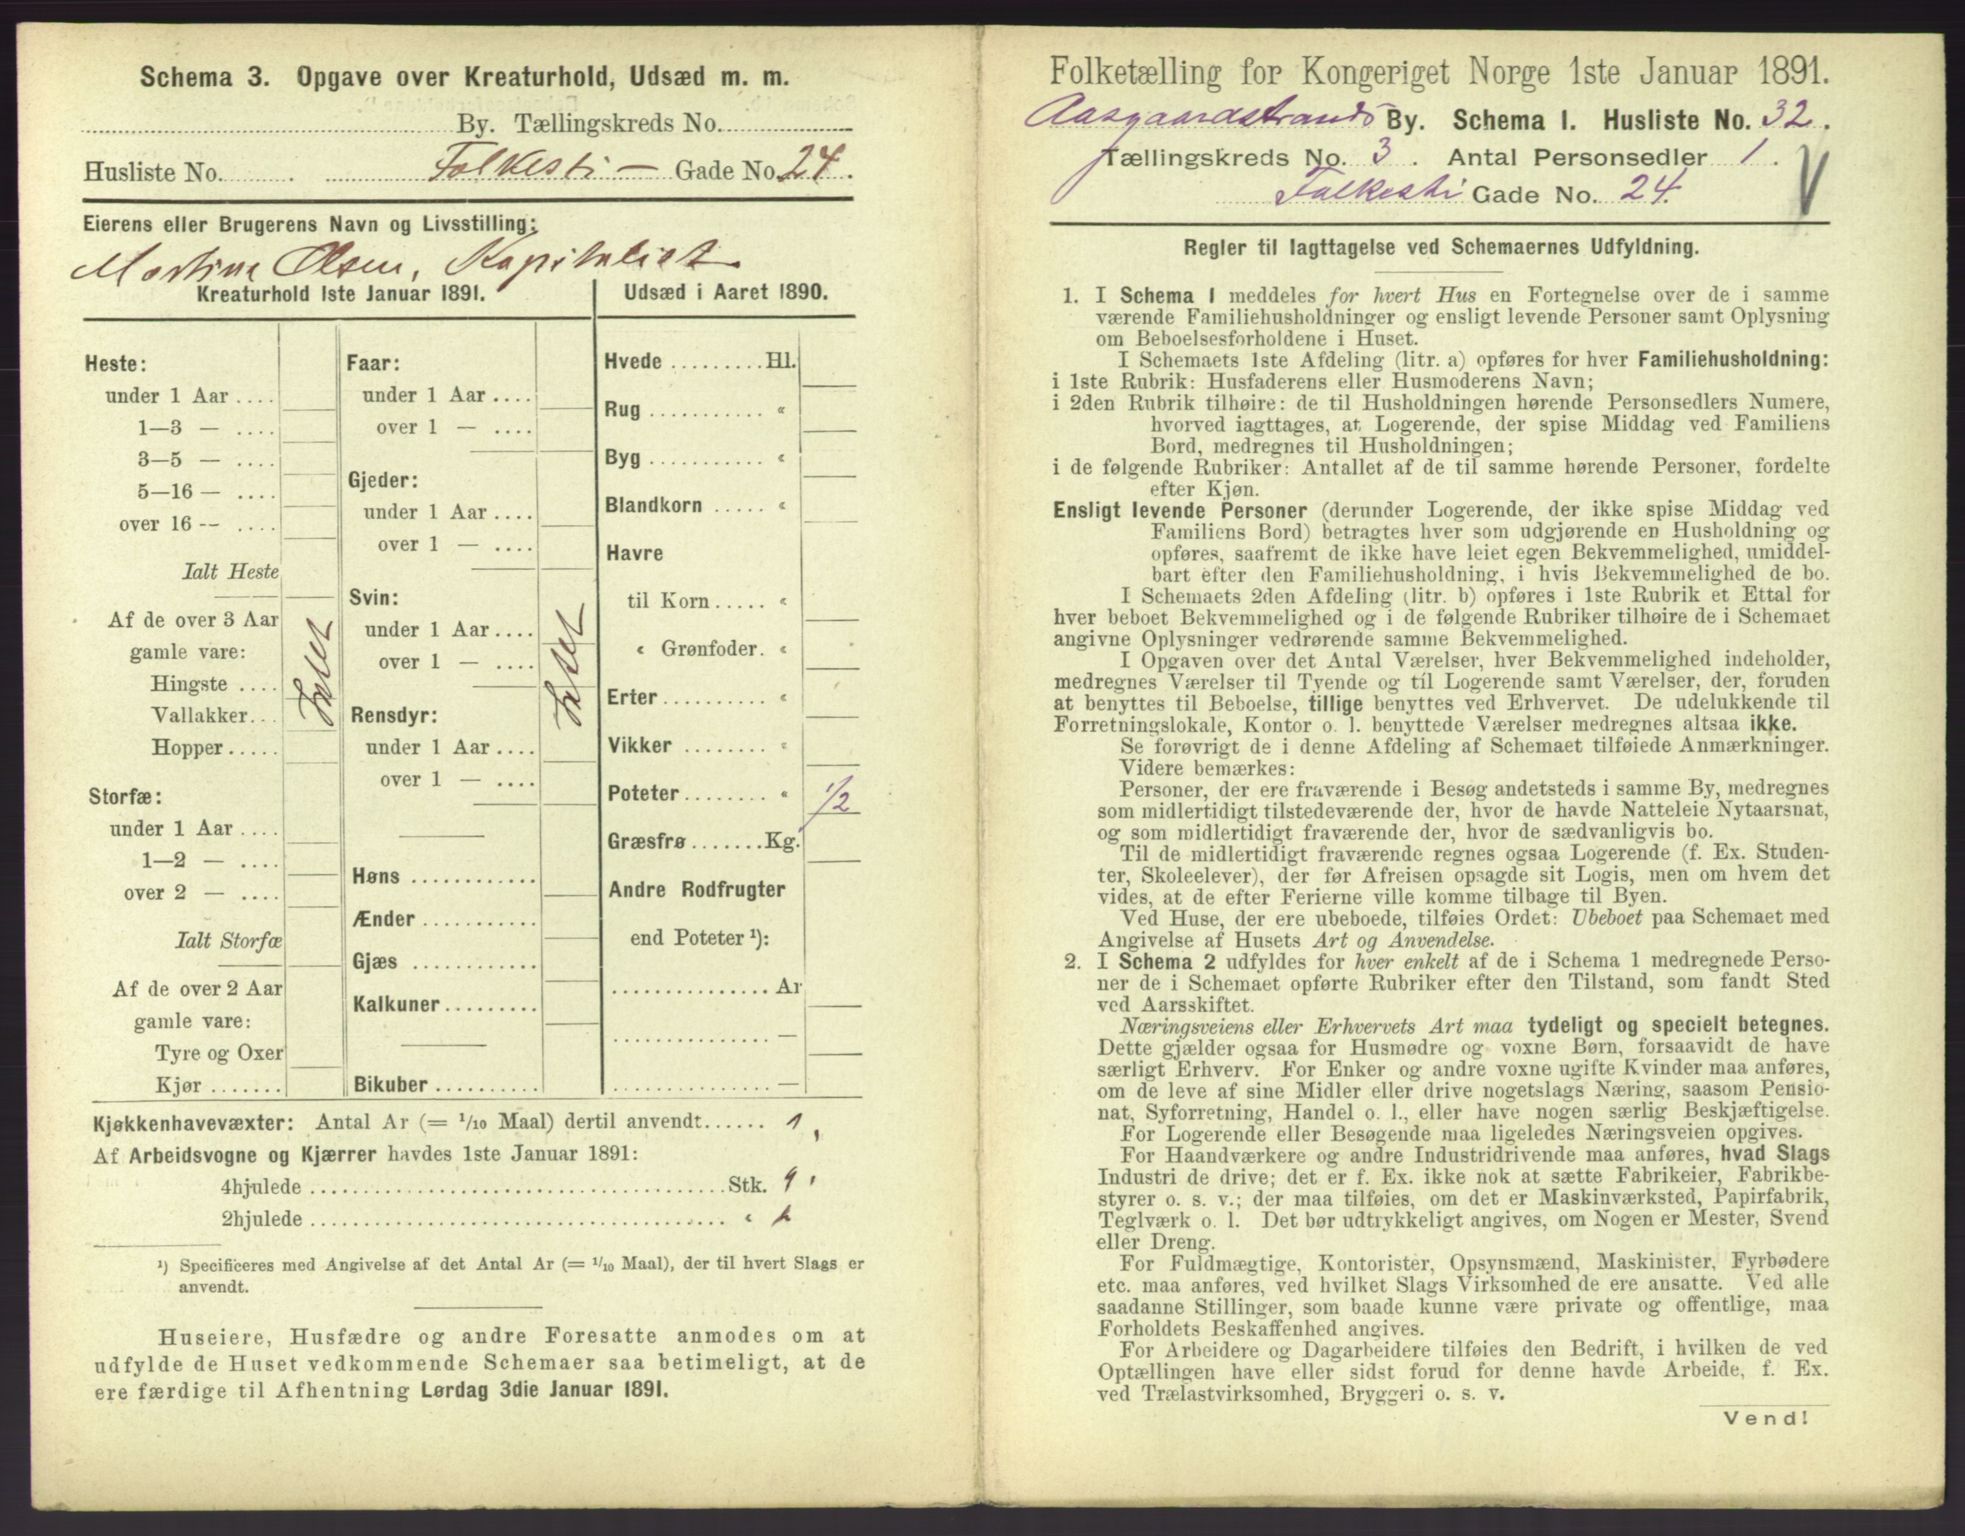 Schema 3. Opgave over Kreaturhold, Udsæd m. m.
By. Tællingskreds No.
Husliste No. Falkesti — Gade No. 24.
Eierens eller Brugerens Navn og Livsstilling:
Martine Olsen, Kapitalist
Kreaturhold 1ste Januar 1891.
Heste:
under 1 Aar ....
1—3 — ....
3—5 — ....
5—16 — ....
over 16 -- ....
Ialt Heste
Af de over 3 Aar
gamle vare:
Hingste ....
Vallakker...
Hopper.....
Storfæ:
under 1 Aar ....
1—2 — ....
over 2 — ....
Ialt Storfæ
Af de over 2 Aar
gamle vare:
Tyre og Oxer
Kjør .......
Intet
Faar:
under 1 Aar ....
over 1 — ....
Gjeder:
under 1 Aar ....
over 1 — ....
Svin:
under 1 Aar ....
over 1 — ....
Rensdyr:
under 1 Aar ....
over 1 — ....
Høns ............
Ænder ...........
Gjæs ............
Kalkuner .........
Bikuber ..........
Intet
Udsæd i Aaret 1890.
Hvede .........Hl.
Rug ........... «
Byg ........... «
Blandkorn ..... «
Havre
til Korn ..... «
« Grønfoder. «
Erter .......... «
Vikker ......... «
Poteter ........ « 1/2
Græsfrø .......Kg.
Andre Rodfrugter
end Poteter ¹):
............... Ar
............... —
............... —
Kjøkkenhavevæxter: Antal Ar (= 1/10 Maal) dertil anvendt...... 1,
Af Arbeidsvogne og Kjærrer havdes 1ste Januar 1891:
4hjulede ........................................Stk.
2hjulede ........................................ «
¹) Specificeres med Angivelse af det Antal Ar (= 1/10 Maal), der til hvert Slags er
anvendt.
Huseiere, Husfædre og andre Foresatte anmodes om at
udfylde de Huset vedkommende Schemaer saa betimeligt, at de
ere færdige til Afhentning Lørdag 3die Januar 1891.
Folketælling for Kongeriget Norge 1ste Januar 1891.
Aasgaardstrands By. Schema I. Husliste No. 32.
Tællingskreds No. 3. Antal Personsedler 1.
Falkesti Gade No. 24.
Regler til Iagttagelse ved Schemaernes Udfyldning.
1. I Schema 1 meddeles for hvert Hus en Fortegnelse over de i samme
værende Familiehusholdninger og ensligt levende Personer samt Oplysning
om Beboelsesforholdene i Huset.
I Schemaets 1ste Afdeling (litr. a) opføres for hver Familiehusholdning:
i 1ste Rubrik: Husfaderens eller Husmoderens Navn;
i 2den Rubrik tilhøire: de til Husholdningen hørende Personsedlers Numere,
hvorved iagttages, at Logerende, der spise Middag ved Familiens
Bord, medregnes til Husholdningen;
i de følgende Rubriker: Antallet af de til samme hørende Personer, fordelte
efter Kjøn.
Ensligt levende Personer (derunder Logerende, der ikke spise Middag ved
Familiens Bord) betragtes hver som udgjørende en Husholdning og
opføres, saafremt de ikke have leiet egen Bekvemmelighed, umiddel-
bart efter den Familiehusholdning, i hvis Bekvemmelighed de bo.
I Schemaets 2den Afdeling (litr. b) opføres i 1ste Rubrik et Ettal for
hver beboet Bekvemmelighed og i de følgende Rubriker tilhøire de i Schemaet
angivne Oplysninger vedrørende samme Bekvemmelighed.
I Opgaven over det Antal Værelser, hver Bekvemmelighed indeholder,
medregnes Værelser til Tyende og til Logerende samt Værelser, der, foruden
at benyttes til Beboelse, tillige benyttes ved Erhvervet. De udelukkende til
Forretningslokale, Kontor o. l. benyttede Værelser medregnes altsaa ikke.
Se forøvrigt de i denne Afdeling af Schemaet tilføiede Anmærkninger.
Videre bemærkes:
Personer, der ere fraværende i Besøg andetsteds i samme By, medregnes
som midlertidigt tilstedeværende der, hvor de havde Natteleie Nytaarsnat,
og som midlertidigt fraværende der, hvor de sædvanligvis bo.
Til de midlertidigt fraværende regnes ogsaa Logerende (f. Ex. Studen-
ter, Skoleelever), der før Afreisen opsagde sit Logis, men om hvem det
vides, at de efter Ferierne ville komme tilbage til Byen.
Ved Huse, der ere ubeboede, tilføies Ordet: Ubeboet paa Schemaet med
Angivelse af Husets Art og Anvendelse.
2. I Schema 2 udfyldes for hver enkelt af de i Schema 1 medregnede Perso-
ner de i Schemaet opførte Rubriker efter den Tilstand, som fandt Sted
ved Aarsskiftet.
Næringsveiens eller Erhvervets Art maa tydeligt og specielt betegnes.
Dette gjælder ogsaa for Husmødre og voxne Børn, forsaavidt de have
særligt Erhverv. For Enker og andre voxne ugifte Kvinder maa anføres,
om de leve af sine Midler eller drive nogetslags Næring, saasom Pensio-
nat, Syforretning, Handel o. l., eller have nogen særlig Beskjæftigelse.
For Logerende eller Besøgende maa ligeledes Næringsveien opgives.
For Haandværkere og andre Industridrivende maa anføres, hvad Slags
Industri de drive; det er f. Ex. ikke nok at sætte Fabrikeier, Fabrikbe-
styrer o. s. v.; der maa tilføies, om det er Maskinværksted, Papirfabrik,
Teglværk o. l. Det bør udtrykkeligt angives, om Nogen er Mester, Svend
eller Dreng.
For Fuldmægtige, Kontorister, Opsynsmænd, Maskinister, Fyrbødere
etc. maa anføres, ved hvilket Slags Virksomhed de ere ansatte. Ved alle
saadanne Stillinger, som baade kunne være private og offentlige, maa
Forholdets Beskaffenhed angives.
For Arbeidere og Dagarbeidere tilføies den Bedrift, i hvilken de ved
Optællingen have eller sidst forud for denne havde Arbeide, f. Ex.
ved Trælastvirksomhed, Bryggeri o. s. v.
Vend!